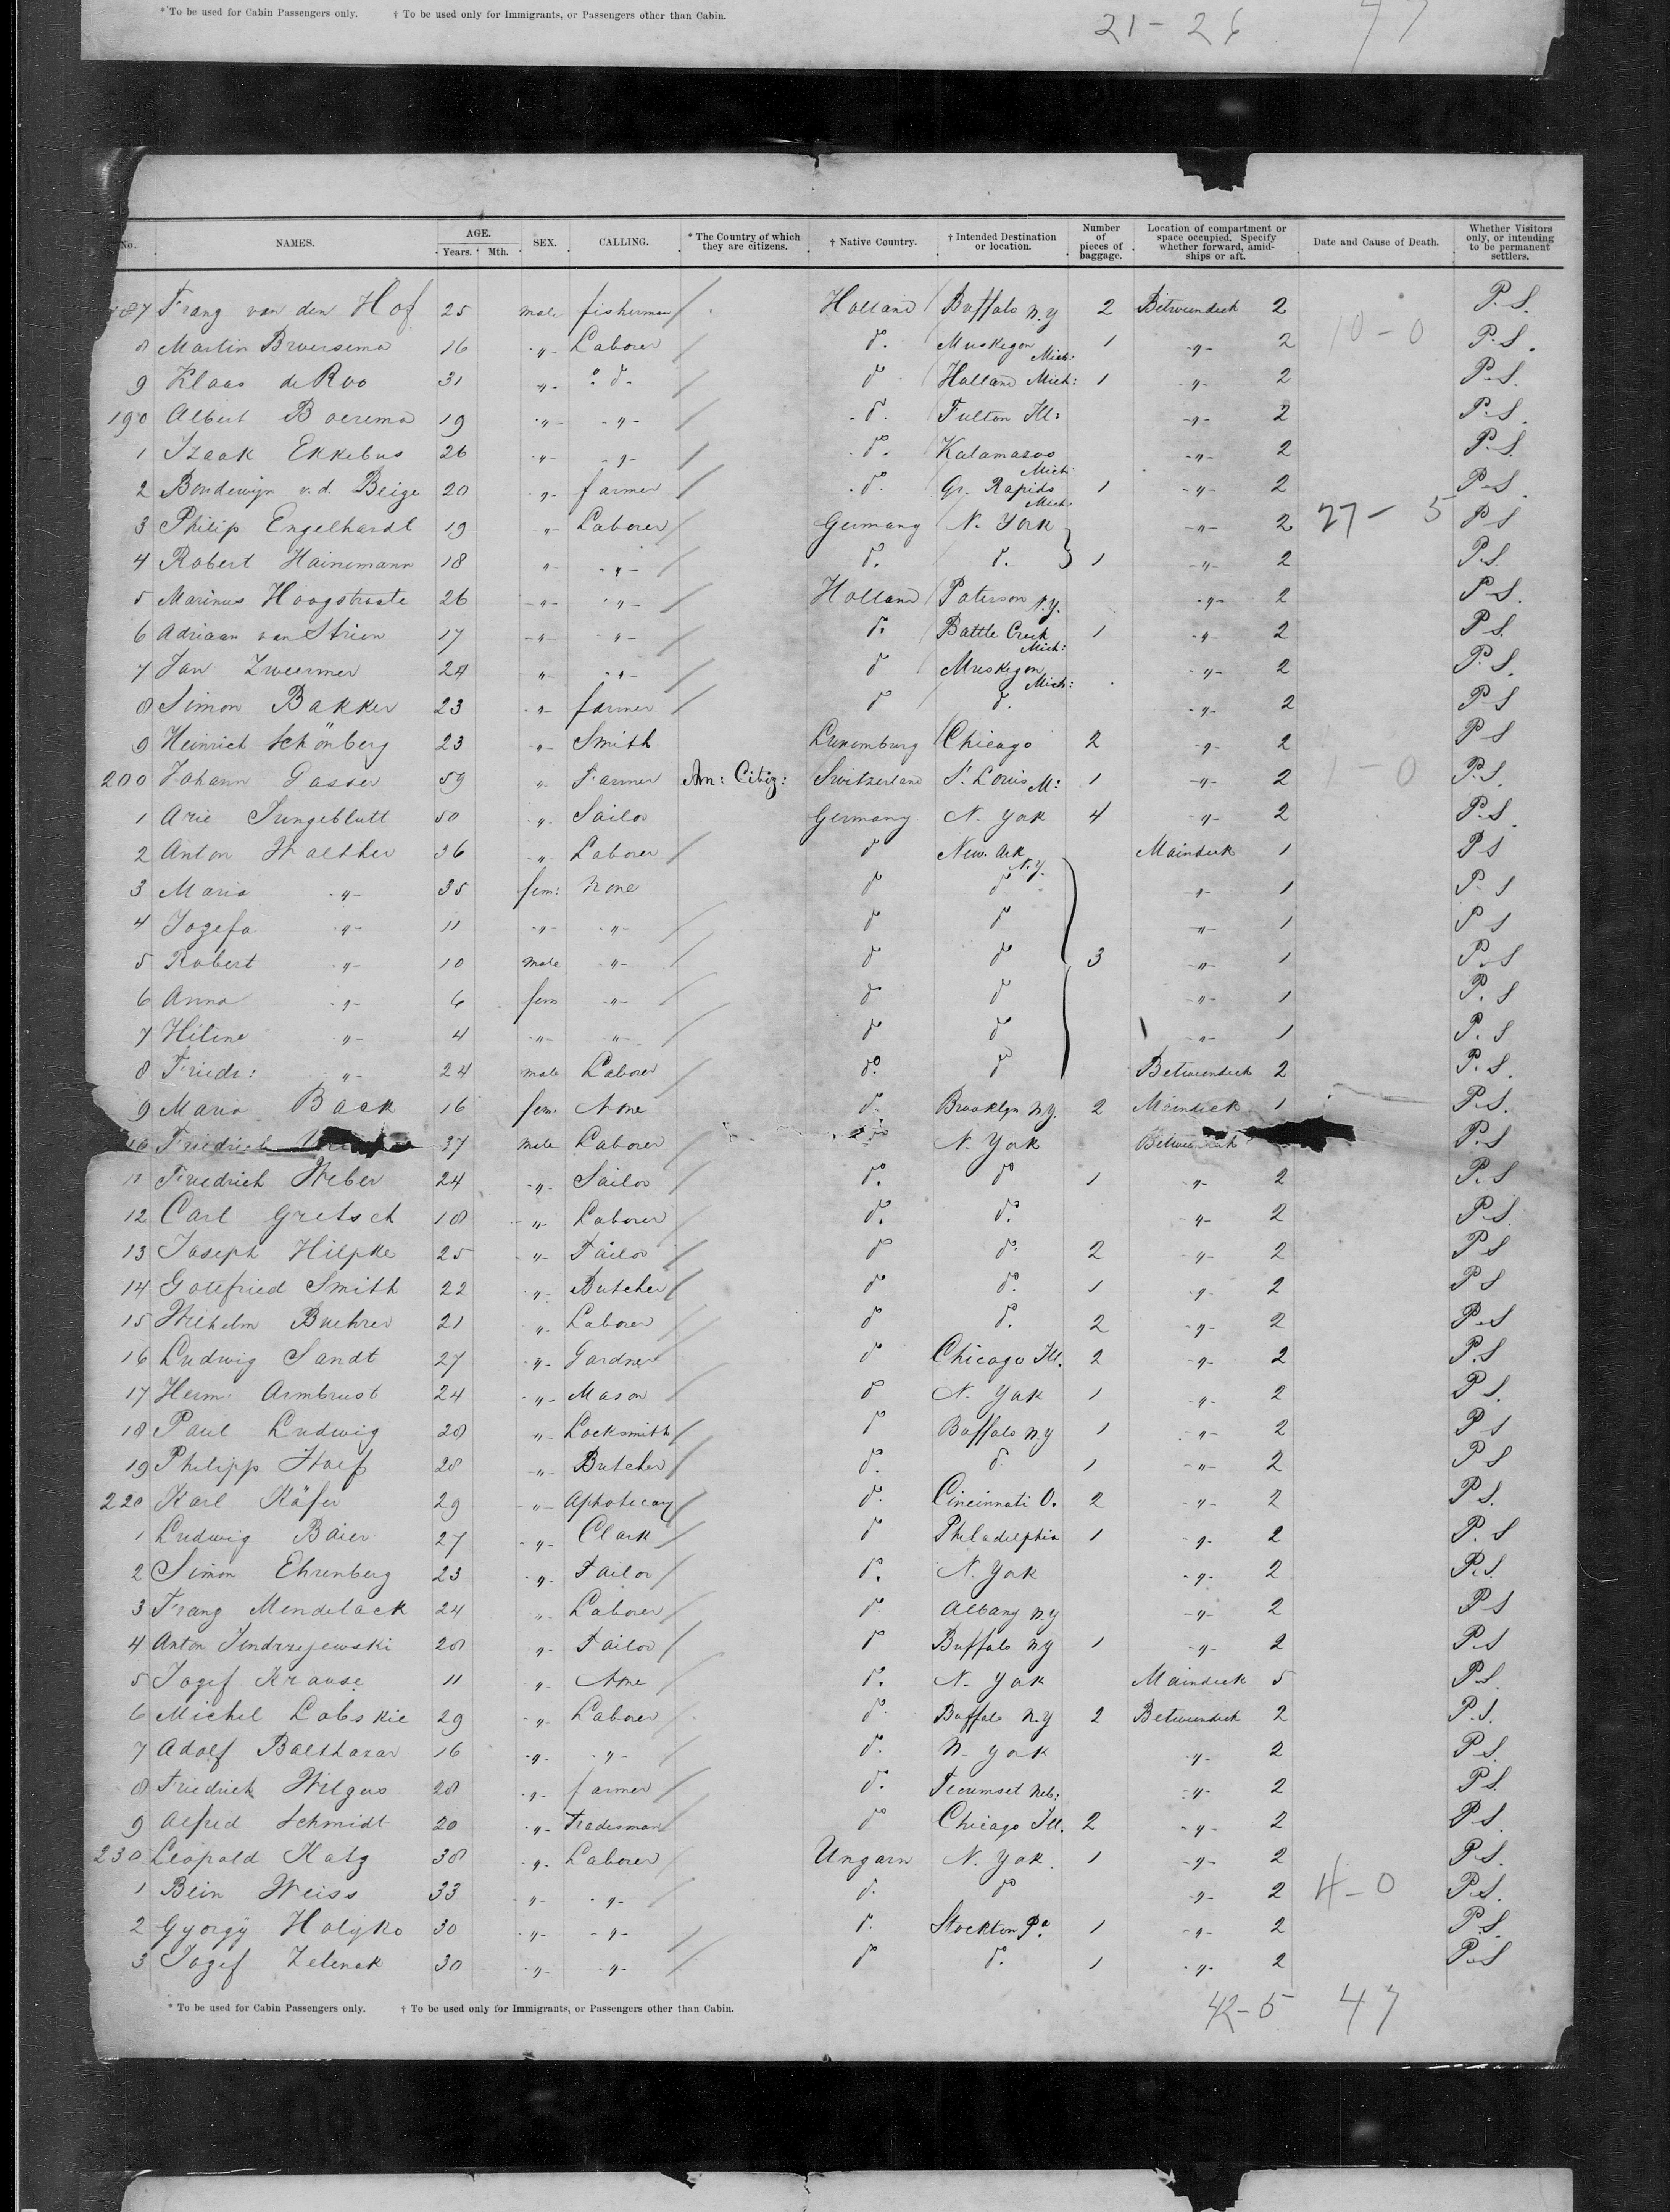 * To be used for Cabin Passengers only. † To be used only for Immigrants, or Passengers other than Cabin.
21-26 47
No. NAMES. AGE. Years. Mth. SEX. CALLING. * The Country of which they are citizens. † Native Country. † Intended Destination or location. Number of pieces of baggage. Location of compartment or space occupied. Specify whether forward, amidships or aft. Date and Cause of Death. Whether Visitors only, or intending to be permanent settlers.
187 Franz van den Hof 25 male fisherman / Holland Buffalo N.Y 2 Betweendeck 2 P.S.
8 Martin Broersema 16 -"- Laborer / do. Muskegon Mich: 1 -"- 2 10-0 P.S.
9 Klaas de Roo 31 -"- do. / do Holland Mich: 1 -"- 2 P.S.
190 Albert Boerema 19 -"- -"- / do. Fulton Ill: -"- 2 P.S.
1 Izaak Ekkebus 26 -"- -"- / do. Kalamazoo Mich: -"- 2 P.S.
2 Boudewijn v.d. Beige 20 -"- farmer / do. Gr. Rapids Mich: 1 -"- 2 P.S.
3 Philip Engelhardt 19 -"- Laborer / Germany N. York -"- 2 27-5 P S
4 Robert Hainemann 18 -"- -"- / do. do. } 1 -"- 2 P.S.
5 Marinus Hoogstraate 26 -"- -"- / Holland Paterson N.Y. -"- 2 P S.
6 Adriaan van Strien 17 -"- -"- / do. Battle Creek Mich: 1 -"- 2 P S.
7 Jan Zweermer 24 -"- -"- / do Muskegon Mich: -"- 2 P. S.
8 Simon Bakker 23 -"- farmer / do do. -"- 2 P S
9 Heinrich Schönberg 23 -"- Smith Luxemburg Chicago 2 -"- 2 P S
200 Johann Gasser 59 -"- Farmer Am: Citiz: Switzerland St. Louis M: 1 -"- 2 1-0 P.S.
1 Arie Jungeblutt 50 -"- Sailor Germany N. York 4 -"- 2 P.S.
2 Anton Walther 36 -"- Laborer / do New. Ark N.Y. Maindeck 1 P S
3 Maria -"- 35 fem: None do do -"- 1 P S
4 Jozefa -"- 11 -"- -"- / do do -"- 1 P S
5 Robert -"- 10 male -"- / do do 3 -"- 1 P.S
6 Anna -"- 6 fem -"- / do do -"- 1 P. S
7 Hilene -"- 4 -"- -"- / do do -"- 1 P. S
8 Friedr: -"- 24 male Laborer / do. do Betweendeck 2 P. S.
9 Maria Back 16 fem. None do. Brooklyn N.Y. 2 Maindeck 1 P.S.
10 Friedrich 37 male Laborer / do N. York P.S
11 Friedrich Weber 24 -"- Sailor / do. do 1 -"- 2 P.S
12 Carl Gretsch 18 -"- Laborer / do. do. -"- 2 P.S.
13 Joseph Hilpke 25 -"- Tailor / do do. 2 -"- 2 P S
14 Gottfried Smith 22 -"- Butcher / do do. 1 -"- 2 P S
15 Wilhelm Buehrer 21 -"- Laborer / do do. 2 -"- 2 P.S
16 Ludwig Sandt 27 -"- Gardner / do Chicago Ill. 2 -"- 2 P.S
17 Herm: Armbrust 24 -"- Mason / do N. York 1 -"- 2 P S.
18 Paul Ludwig 28 -"- Locksmith / do Buffalo N.Y 1 -"- 2 P S
19 Philipp Wolf 28 -"- Butcher / do. do 1 -"- 2 P S
220 Karl Käfer 29 -"- Aphotecary / do. Cincinnati O. 2 -"- 2 P S.
1 Ludwig Baier 27 -"- Clark / do Philadelphia 1 -"- 2 P. S
2 Simon Ehrenberg 23 -"- Tailor / do. N. York -"- 2 P.S.
3 Franz Mendelack 24 -"- Laborer / do Albany N.Y -"- 2 P S
4 Anton Jendrzejewski 28 -"- Tailor / do Buffalo N.Y 1 -"- 2 P.S
5 Jozef Krause 11 -"- None / do. N. York Maindeck 5 P.S.
6 Michel Lobskie 29 -"- Laborer / do. Buffalo N.Y 2 Betweendeck 2 P.S.
7 Adolf Balthazar 16 -"- -"- / do. N. York -"- 2 P S.
8 Friedrich Wilgers 28 -"- farmer / do. Tecumset Neb: -"- 2 P S.
9 Alfred Schmidt 20 -"- Tradesman / do Chicago Ill. 2 -"- 2 P S.
230 Leopold Katz 38 -"- Laborer / Ungarn N. York. 1 -"- 2 P.S.
1 Bein Weiss 33 -"- -"- / do. do -"- 2 4-0 P.S.
2 Gyorgy Holyko 30 -"- -"- / do. Stockton Pa. 1 -"- 2 P.S.
3 Jozef Zelenak 30 -"- -"- / do do. 1 -"- 2 P.S
* To be used for Cabin Passengers only. † To be used only for Immigrants, or Passengers other than Cabin.
42-5 47